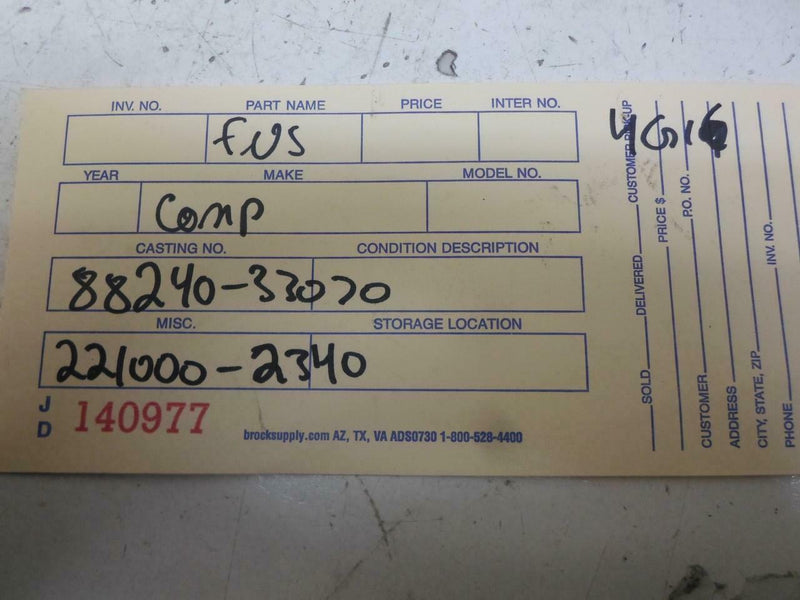 INV. NO. PART NAME PRICE INTER NO.
FUS
YEAR MAKE MODEL NO.
Comp
CASTING NO. CONDITION DESCRIPTION
88240-33070
MISC. STORAGE LOCATION
221000-2340
J D 140977
brocksupply.com AZ, TX, VA ADS0730 1-800-528-4400
SOLD DELIVERED CUSTOMER PICK-UP
PRICE $
P.O. NO.
CUSTOMER
ADDRESS
CITY, STATE, ZIP
INV. NO.
PHONE